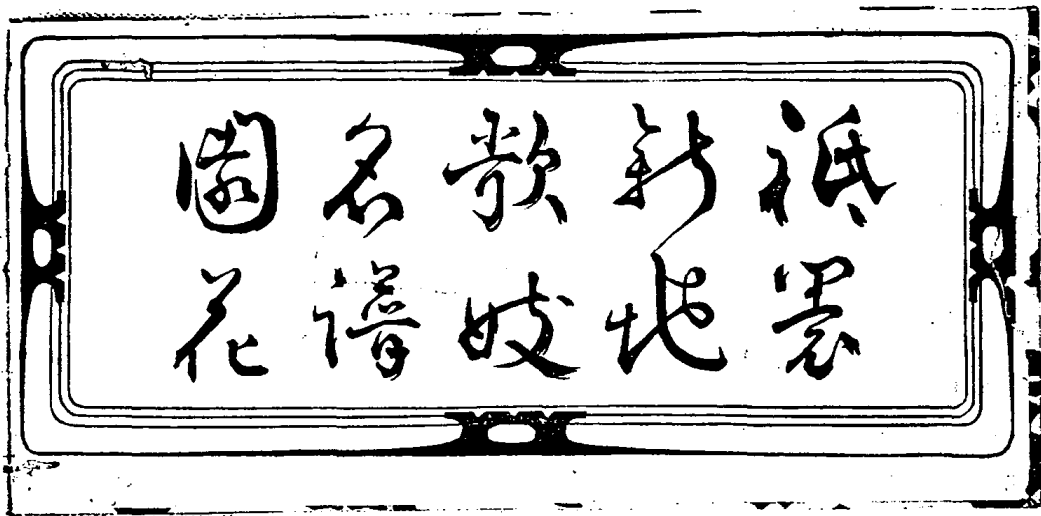 祇園
新地
歌妓
名譜
花